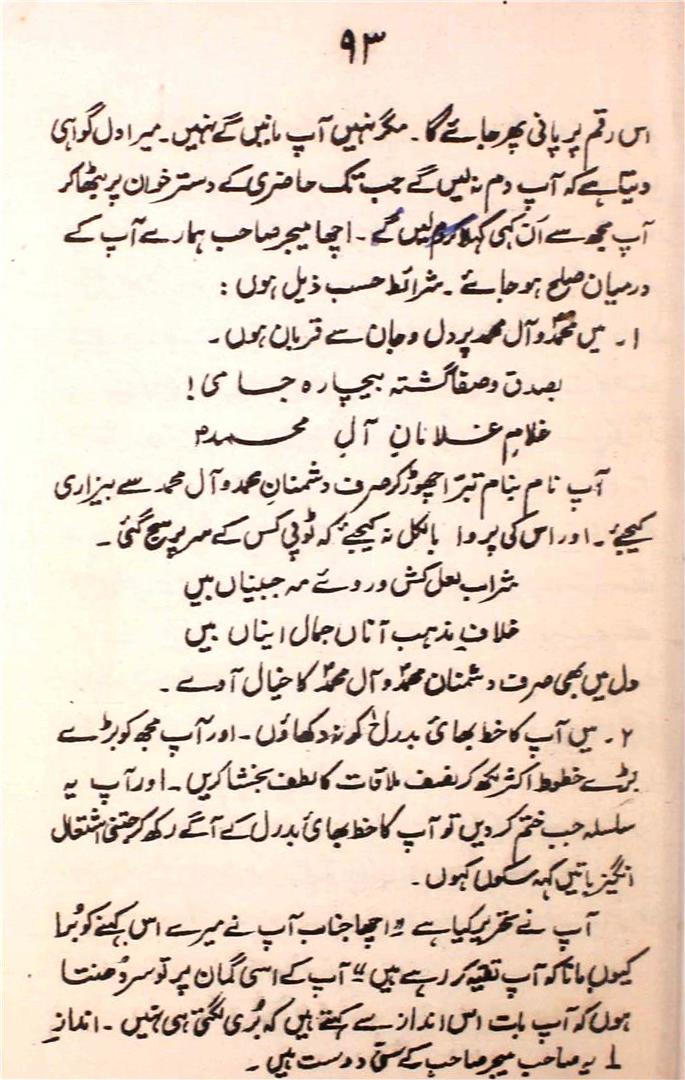 ۹۳
اس رقم پر پانی پھر جائے گا۔ مگر نہیں آپ مانیں گے نہیں۔ میرا دل گواہی
دیتا ہے کہ آپ دم نہ لیں گے جب تک حاضری کے دستر خوان پر بٹھا کر
آپ مجھ سے اَن کہی کہلا کر لیں گے۔ اچھا میجر صاحب ہمارے آپ کے
درمیان صلح ہو جائے۔ شرائط حسب ذیل ہوں :
۱۔ میں محمدؐ و آل محمد پر دل و جان سے قربان ہوں۔
بصدق و صفا گشتہ بیچارہ جامی !
غلامِ غلامانِ آلِ محمدؐ
آپ نام بنام تبرّا چھوڑ کر صرف دشمنانِ محمد و آل محمد سے بیزاری
کیجئے۔ اور اس کی پروا بالکل نہ کیجئے کہ ٹوپی کس کے سر پر سج گئی۔
شراب لعل کش و روئے مہ جبیناں بیں
خلافِ مذہب آناں جمال ایناں بیں
دل میں بھی صرف دشمنان محمدؐ و آل محمدؐ کا خیال آوے۔
۲۔ میں آپ کا خط بھائی بدرل کو نہ دکھاؤں۔ اور آپ مجھ کو بڑے
بڑے خطوط اکثر لکھ کر نصف ملاقات کا لطف بخشا کریں۔ اور آپ یہ
سلسلہ جب ختم کر دیں تو آپ کا خط بھائی بدرل کے آگے رکھ کر جتنی اشتعال
انگیز باتیں کہہ سکوں کہوں۔
آپ نے تحریر کیا ہے "اچھا جناب آپ نے میرے اس کہنے کو بُرا
کیوں مانا کہ آپ تقیّہ کر رہے ہیں" آپ کے اسی گمان پر تو سر دُھنتا
ہوں کہ آپ بات اس انداز سے کہتے ہیں کہ بُری لگتی ہی نہیں۔ اندازِ
۱ یہ صاحب میجر صاحب کے سنّی دوست ہیں۔